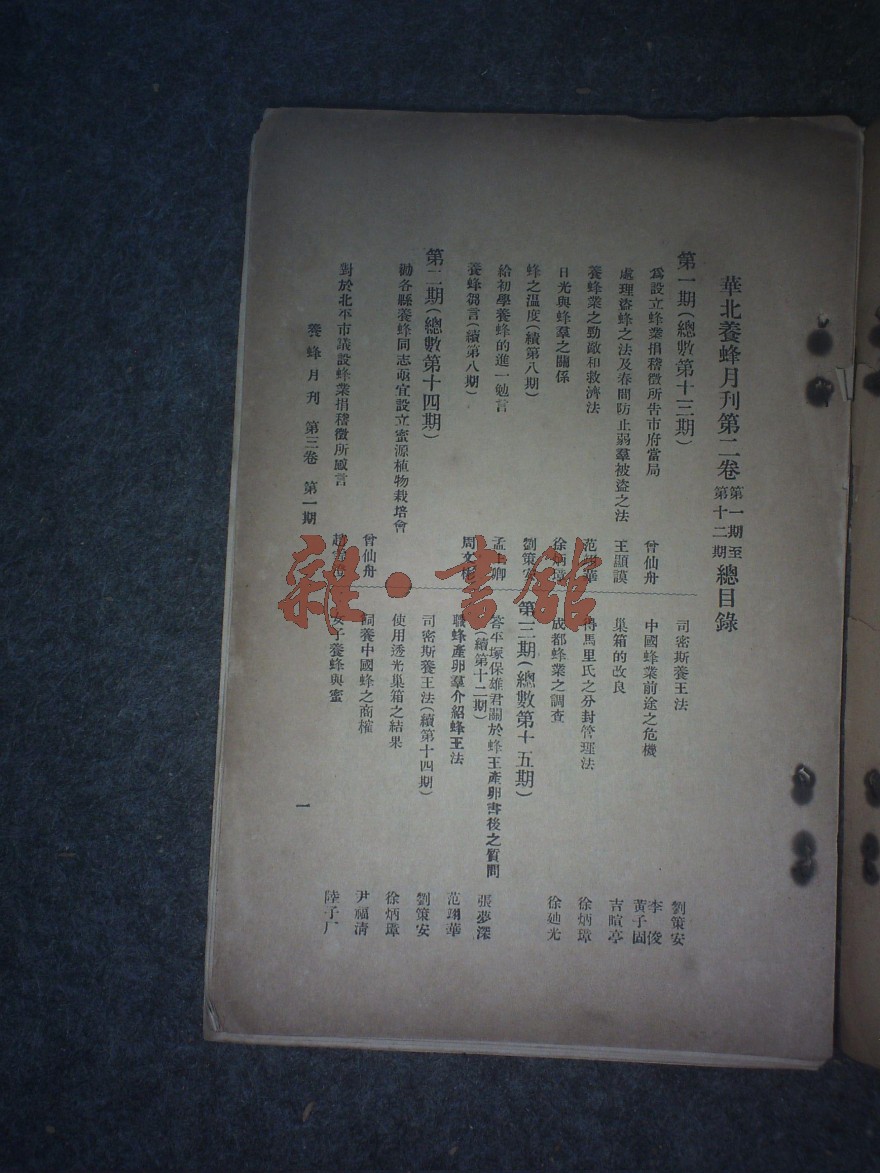 華北養蜂月刊第二卷 第一期至第十二期 總目錄
第一期(總數第十三期)
爲設立蜂業捐稽徵所告市府當局 曾仙舟
處理盜蜂之法及春間防止弱羣被盜之法 王顯謨
養蜂業之勁敵和救濟法 范翊華
日光與蜂羣之關係 徐炳璋
蜂之溫度(續第八期) 劉策安
給初學養蜂的進一勉言 孟上卿
養蜂芻言(續第八期) 周文彬
第二期(總數第十四期)
勸各縣養蜂同志亟宜設立蜜源植物栽培會 曾仙舟
對於北平市議設蜂業捐稽徵所感言
司密斯養王法 劉策安
中國蜂業前途之危機 李俊 黃子固
巢箱的改良 吉暄亭
得馬里氏之分封管理法 徐炳璋
成都蜂業之調查 徐廸光
第三期(總數第十五期)
答平塚保雄君關於蜂王產卵書後之質問(續第十二期) 張夢深
職蜂產卵羣介紹蜂王法 范翊華
司密斯養王法(續第十四期) 劉策安
使用透光巢箱之結果 徐炳璋
飼養中國蜂之商榷 尹福清
女子養蜂與蜜 陸子厂
養蜂月刊 第三卷 第一期
一
雜·書館